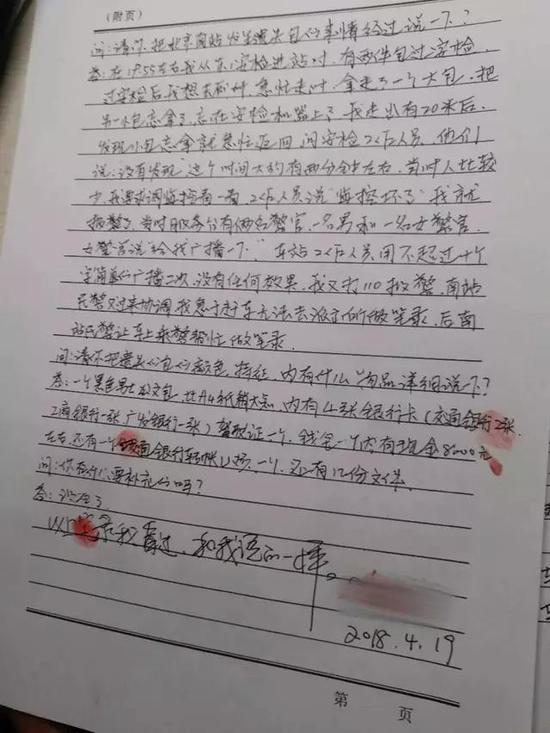 （附页）
问：请你把北京南站发生遗失包的事情经过说一下？
答：在17:55左右我从东安检进站时，有两件包过安检
过安检后我想去 急忙走时，拿走了一个大包，把
另一小包忘拿了，忘在安检机器上了，我走出有20米后，
发现小包忘拿就急忙返回，问安检工作人员，他们
说：没有发现 这个时间大约有两分钟左右，当时人比较
少，我要求调监控看一看，工作人员说"监控坏了"我就
报警了，当时服务台有俩名警官，一名男和一名女警官，
女警官说"给我广播一下"，车站工作人员，用不超过十个
字简 广播二次，没有任何效果，我又打110报警，南站
民警又过来协调，我急于赶车无法去派出所做笔录，后南
站民警让车上乘警帮忙做笔录。
问：请你把丢失的包的颜色，特征，内有什么物品详细说一下？
答：一个黑色男士 文包，比A4纸稍大点，内有4张银行卡（交通银行2张
工商银行一张，广发银行一张）驾驶证一个，钱包一个内有现金8000元
左右，还有一个交通银行 ，一个，还有 份文件。
问：你有什么要补充的吗？
答：没有了
以上笔录我看过，和我说的一样。
2018.4.19
第 页